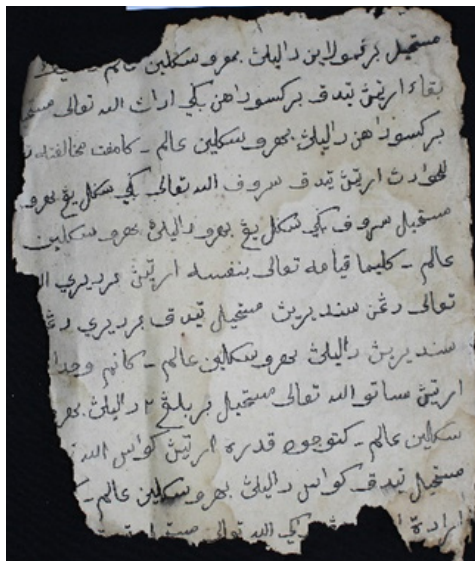 مستحيل برڤمولاين داليلڽ بهرو سكلين عالم
بقاء ارتيڽ تيدق بركسوداهن بكي ذات الله تعالى
بركسوداهن داليلڽ بهرو سكلين عالم - كامڤت مخالفته
للحوادث ارتيڽ تيدق سروف الله تعالى بكي سكل يڠ بهرو
مستحيل سروف بكي سكل يڠ بهرو داليلڽ بهرو سكلين
عالم - كليما قيامه تعالى بنفسه ارتيڽ برديري
تعالى دڠن سنديريڽ مستحيل تيدق برديري
سنديريڽ داليلڽ بهرو سكلين عالم - كانم
ارتيڽ ساتو الله تعالى مستحيل بربيلڠ٢ داليلڽ بهرو
سكلين عالم - كتوجوه قدرة ارتيڽ كواس الله
مستحيل تيدق كواس داليلڽ بهرو سكلين عالم -
ارادة الله تعالى